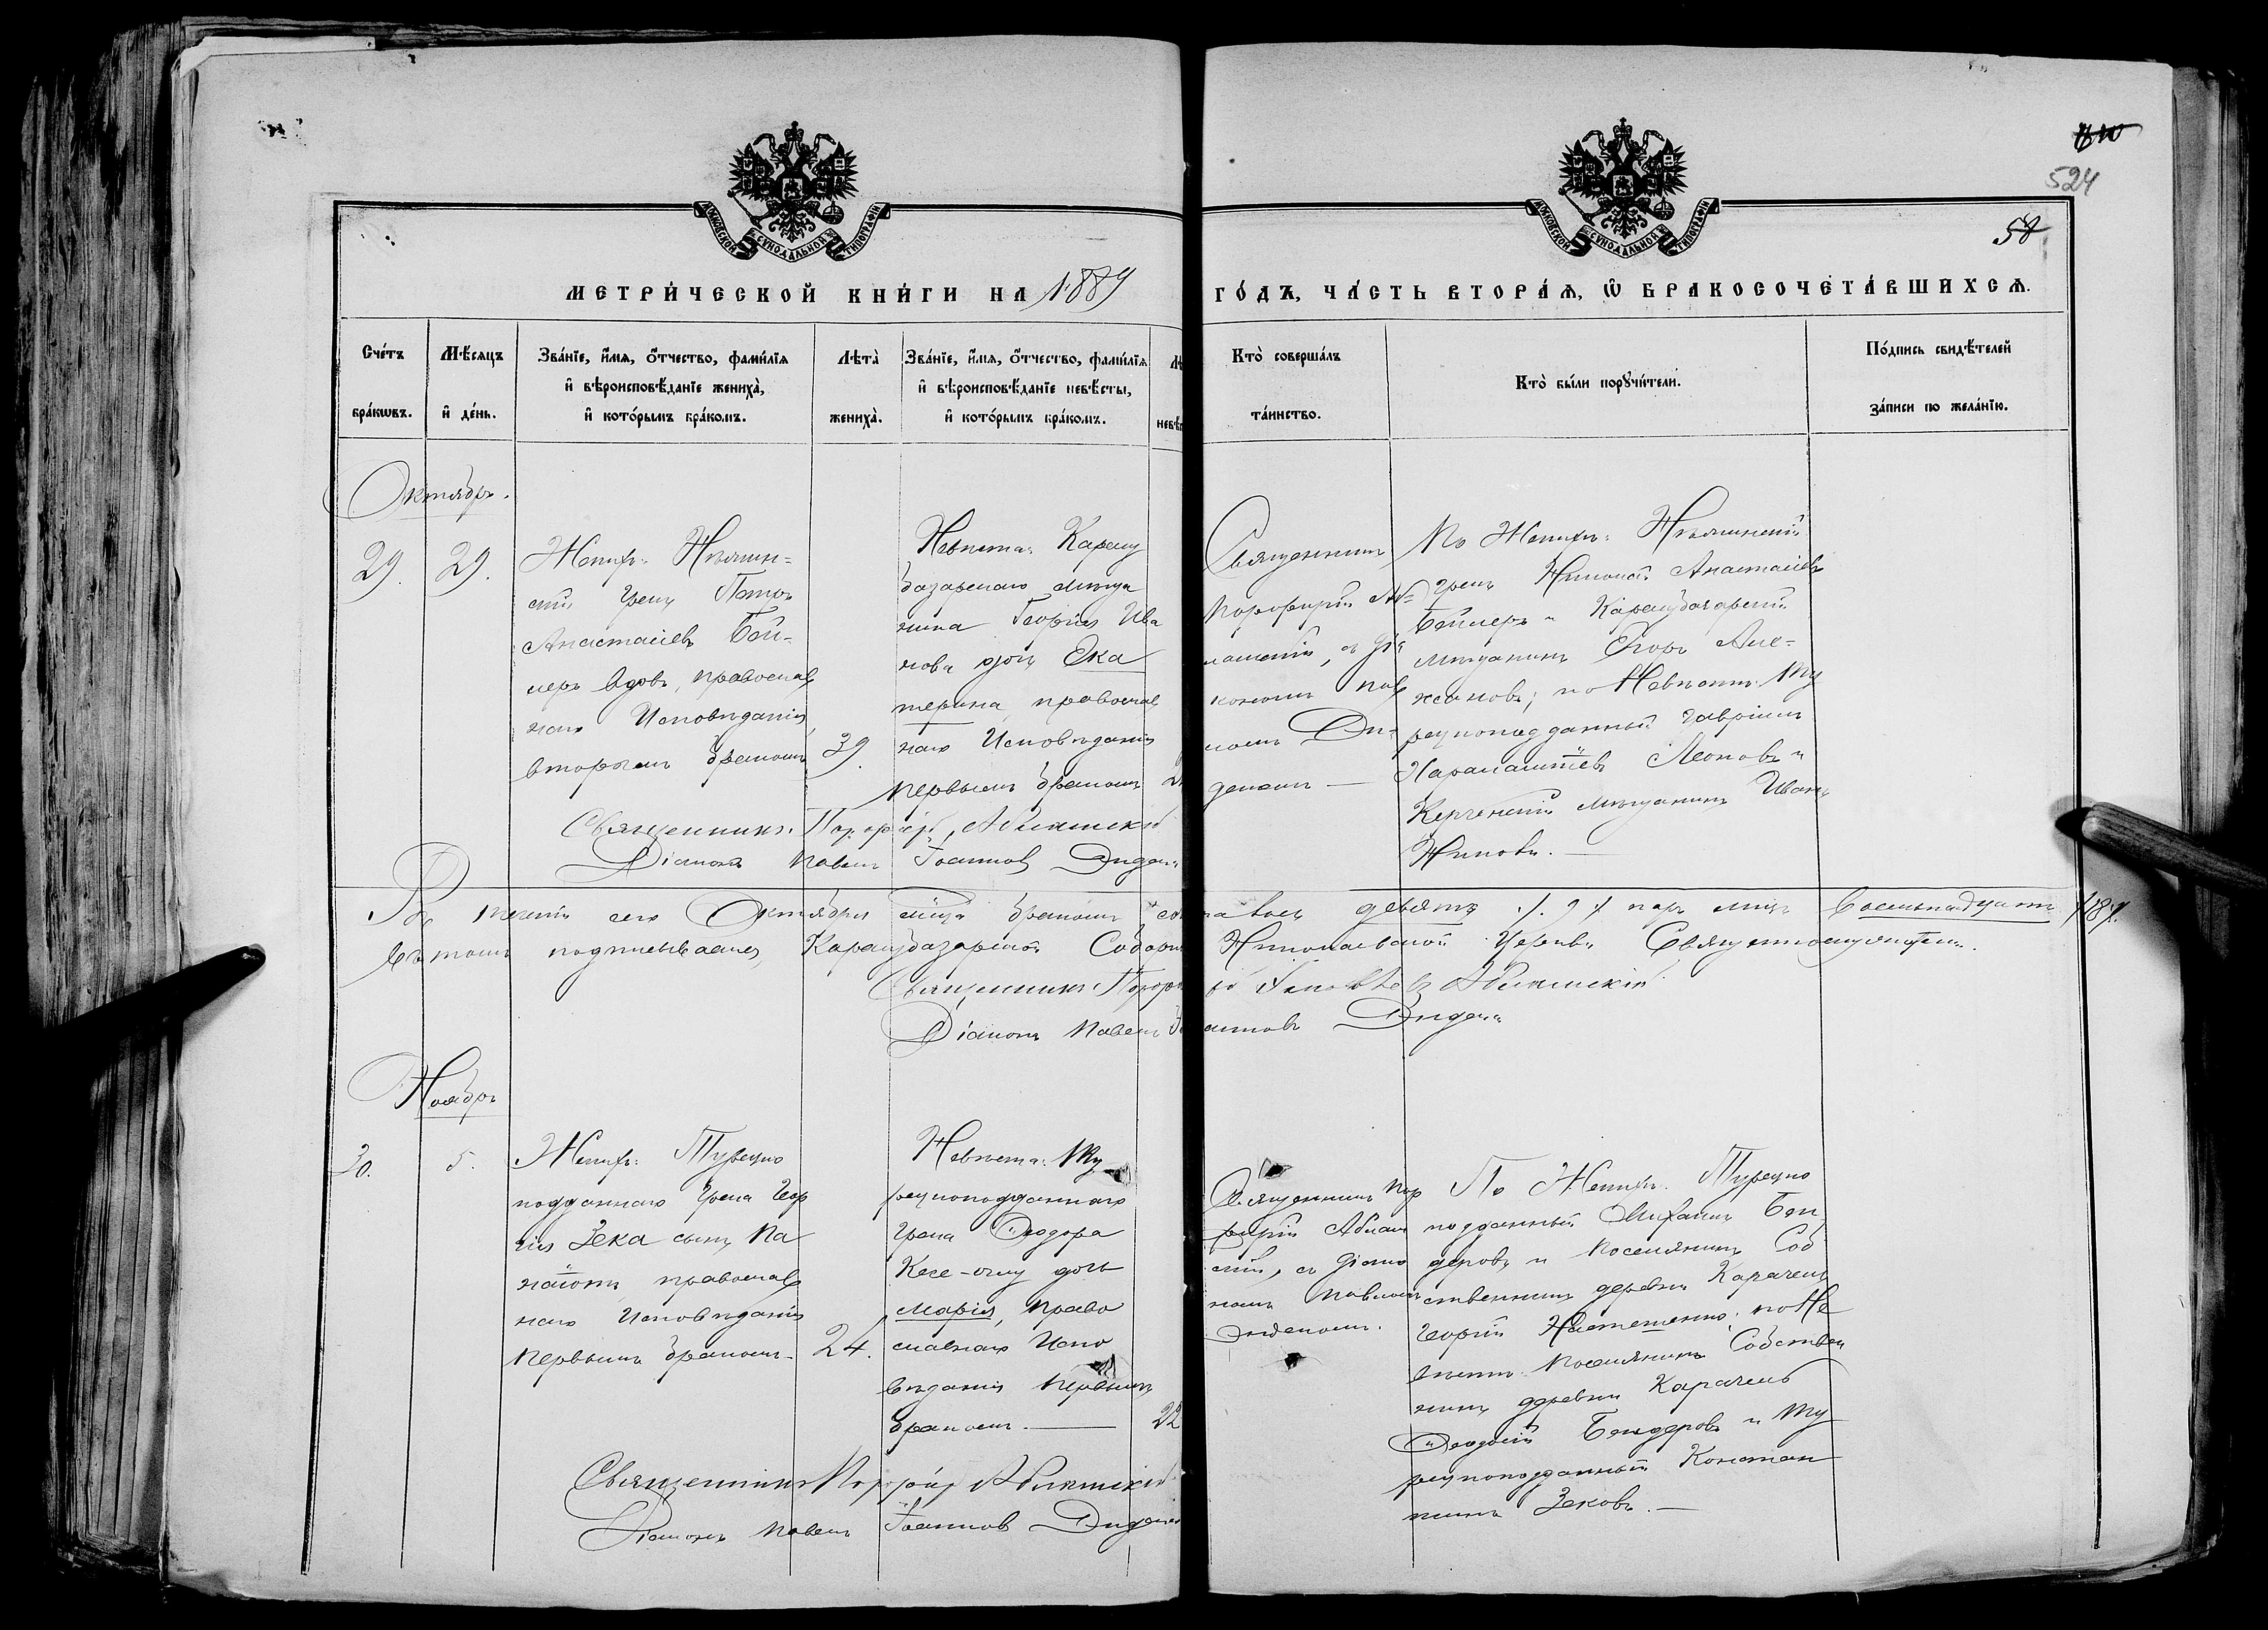 524
58
МОСКОВСКОЙ СУНОДАЛЬНОЙ ТИПОГРАФІИ
МОСКОВСКОЙ СУНОДАЛЬНОЙ ТИПОГРАФІИ
МЕТРИ́ЧЕСКОЙ КНИ́ГИ НА 1889 ГО́ДЪ, ЧА́СТЬ ВТОРА́Ѧ, Ѿ БРАКОСОЧЕТА́ВШИХСѦ.
Сче́тъ
бра́кѡвъ.
Мѣ́сяцъ
и҆ де́нь.
Зва́нїе, и҆́мя, о҆́тчество, фами́лїя
и҆ вѣроисповѣ́данїе жениха̀,
и҆ кото́рымъ бра́комъ.
Лѣта̀
жениха̀.
Зва́нїе, и҆́мя, о҆́тчество, фами́лїя
и҆ вѣроисповѣ́данїе невѣ́сты,
и҆ кото́рымъ бра́комъ.
Кто̀ соверша́лъ
та́инство.
Кто̀ бы́ли порꙋчи́тели.
По́дпись свидѣ́телей
за́писи по жела́нїю.
Октябрь.
29.
29.
Женихъ: Нѣжин=
скій Грекъ Петръ
Анастасіевъ Бей-
леръ вдовъ, православ
наго Исповѣданія
вторымъ бракомъ
39.
Невѣста: Карасу
базарскаго мѣща
нина Георгія Ива
нова дочь Ека
терина, православ
наго Исповѣданія
первымъ бракомъ
Священникъ
Порфирій Аб=
лашскій, съ Діа
кономъ Пав
ломъ Ди=
деномъ —
По Женихѣ: Нѣжинскій
Грекъ Николай Анастасіевъ
Бейлеръ и Карасубазарскій
мѣщанинъ Егоръ Але=
ксановъ; по Невѣстѣ: Ту
рецкоподданный Гавріилъ
Харалампіевъ Леоновъ и
Керченскій мѣщанинъ Иванъ
Священникъ Порфирій Аблашскій
Діаконъ Павелъ Іоанновъ
Въ теченіи сего Октября мѣсяца бракомъ девять /. 9 ./ паръ лицъ восемнадцать /.18./.
въ томъ подписываемся, Карасубазарской Соборной Николаевской Церкви Священнослужители.
Священникъ Порфирій Аблашскій
Діаконъ Павелъ Іоанновъ
Ноябрь
30.
5.
Женихъ: Турецко
подданнаго Грека Геор
гія Зека сынъ Па
наіотъ, православ
наго Исповѣданія
первымъ бракомъ
24.
Невѣста: Ту
рецкоподданнаго
Грека Ѳеодора
Кесе-оглу дочь
Марія, право
славнаго Испо
вѣданія первымъ
бракомъ. —
22
Священникъ Пор
фирій Аблаш
скій, съ Діако
номъ Павломъ
По Женихѣ: Турецко
подданный Михаилъ Бен
деровъ и Поселянинъ Соб
ственникъ деревни Карачель
Георгій по Не
вѣстѣ: Поселянинъ Собствен
никъ деревни Карачель
Ѳеодосій Бендеровъ и Ту
рецкоподданный Констан
тинъ Зековъ. —
Священникъ Порфирій Аблашскій
Діаконъ Павелъ Іоанновъ